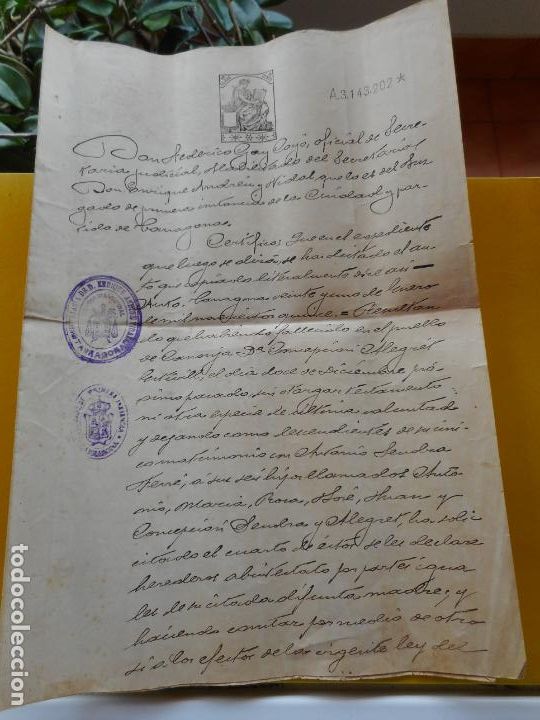 A.3.143.202*
Don Federico Gay Torjó, oficial de Secre-
taria judicial, Habilitado del Secretario
Don Enrique Andreu y Vidal que lo es del Juz-
gado de primera instancia de la Ciudad y par-
tido de Tarragona.
Certifico: Que en el expediente
que luego se dirá se ha dictado el au-
to que copiado literalmente dice asi =
Auto. Tarragona veinte y uno de Enero
de mil novecientos quince. = Resultan-
do que habiendo fallecido en el pueblo
de Canonja Dª Concepcion Alegret
el dia doce de Diciembre pró-
simo pasado, sin otorgar testamento
ni otra especie de última voluntad
y dejando como descendientes de su úni-
co matrimonio con Antonio Sendra
Ferré, a sus seis hijos llamados Anto-
nio, Maria, Rosa, José, Juan y
Concepcion Sendra y Alegret, ha soli-
citado el cuarto de éstos se les declare
herederos abintestato por partes igua-
les de su citada difunta madre; y
haciendo constar por medio de otro
si a los efectos de la vigente ley del
todocoleccion.net